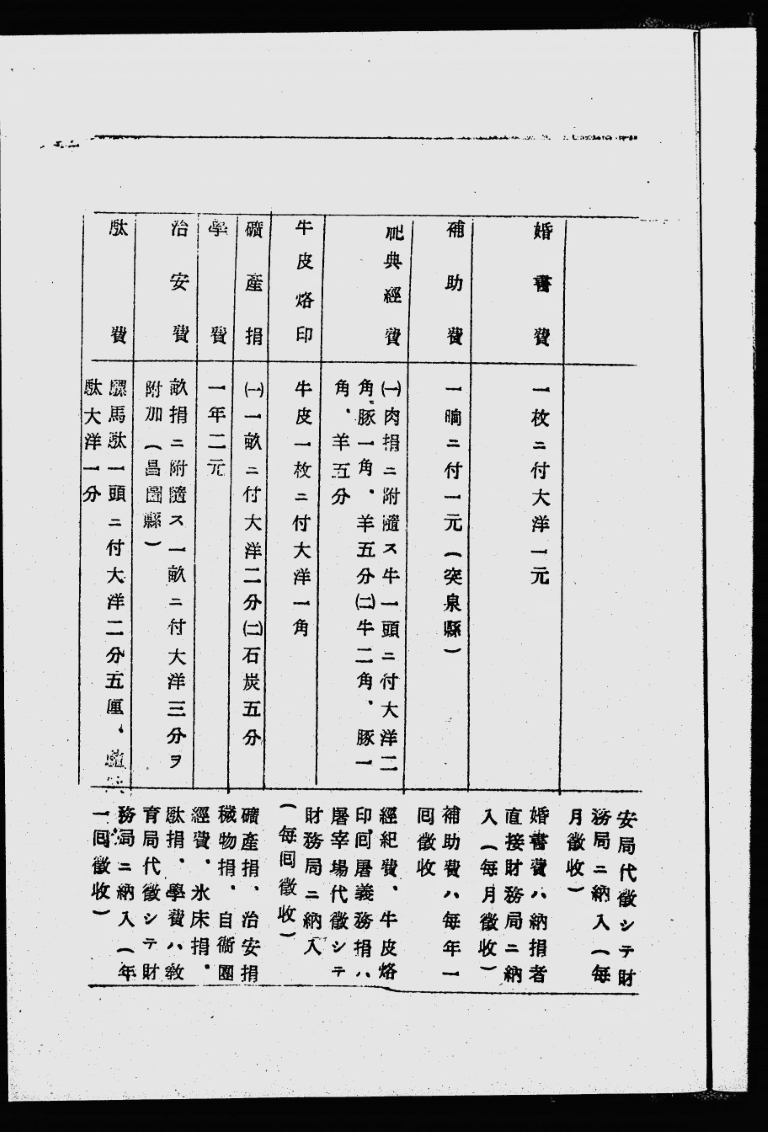 婚書費
一枚ニ付大洋一元
補助費
一晌ニ付一元(突泉縣)
祀典經費
㈠肉捐ニ附隨ス牛一頭ニ付大洋二
角、豚一角、羊五分㈡牛二角、豚一
角、羊五分
牛皮烙印
牛皮一枚ニ付大洋一角
礦產捐
㈠一畝ニ付大洋二分㈡石炭五分
學費
一年二元
治安費
畝捐ニ附隨ス一畝ニ付大洋三分ヲ
附加(昌圖縣)
馱費
騾馬馱一頭ニ付大洋二分五厘、
馱大洋一分
安局代徵シテ財
務局ニ納入(每
月徵收)
婚書費ハ納捐者
直接財務局ニ納
入(每月徵收)
補助費ハ每年一
囘徵收
經紀費、牛皮烙
印囘屠義務捐ハ
屠宰場代徵シテ
財務局ニ納入
(每囘徵收)
礦產捐、治安捐
穢物捐、自衞團
經費、氷床捐、
馱捐、學費ハ敎
育局代徵シテ財
務局ニ納入(年
一囘徵收)